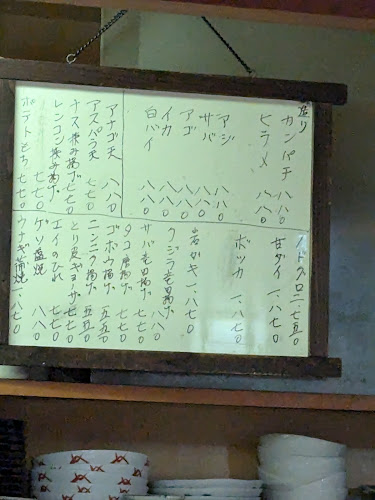 造り
カンパチ 八八〇
ヒラメ 八八〇
アジ 八八〇
サバ 八八〇
アゴ 八八〇
イカ 八八〇
白バイ 八八〇
アナゴ天 八八〇
アスパラ天 七七〇
ナス挟み揚げ 七七〇
レンコン挟み揚げ 七七〇
ポテトもち 七七〇
ノドグロ 二、七五〇
甘ダイ 一、八七〇
ボッカ 一、八七〇
岩ガキ 一、八七〇
クジラ竜田揚げ 一、八七〇
サバ竜田揚げ 八八〇
タコ唐揚げ 七七〇
ゴボウ揚げ 五五〇
ニンニク揚げ 五五〇
とり皮ギョーザ 七七〇
エイのひれ 七七〇
ゲソ塩焼 八八〇
ウナギ蒲焼 一、八七〇